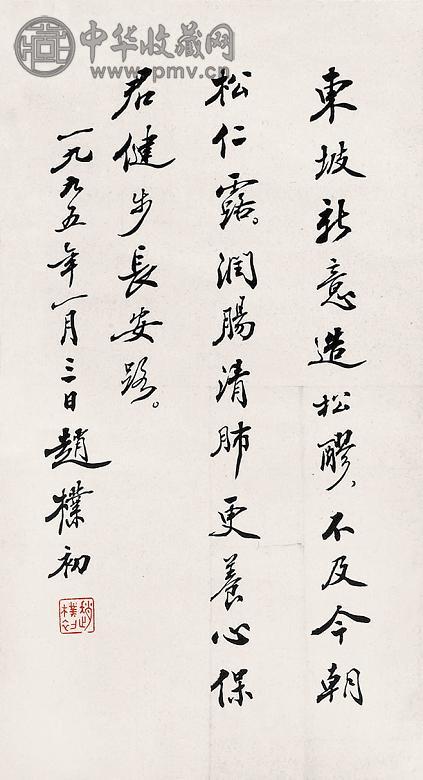 中华收藏网
www.pmv.cn
東坡新意造松醪、不及今朝
松仁露。潤腸清肺更養心保
君健步長安路。
一九九五年一月三日趙樸初
趙樸初